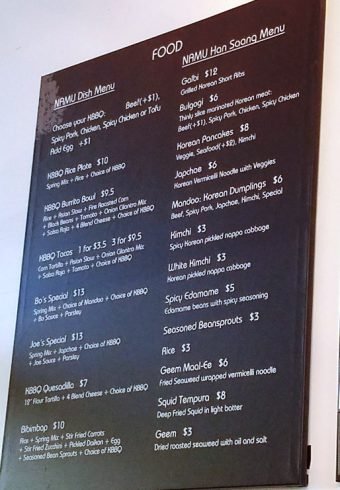 FOOD
NAMU Dish Menu
Choose your KBBQ: Beef(+$1),
Spicy Pork, Chicken, Spicy Chicken or Tofu
Add Egg +$1
KBBQ Rice Plate $10
Spring Mix + Rice + Choice of KBBQ
KBBQ Burrito Bowl $9.5
Rice + Asian Slaw + Fire Roasted Corn
+ Black Beans + Tomato + Onion Cilantro Mix
+ Salsa Roja + 4 Blend Cheese + Choice of KBBQ
KBBQ Tacos 1 for $3.5 3 for $9.5
Corn Tortilla + Asian Slaw + Onion Cilantro Mix
+ Salsa Roja + Tomato + Choice of KBBQ
Bo's Special $13
Spring Mix + Choice of Mandoo + Choice of KBBQ
+ Bo Sauce + Parsley
Joe's Special $13
Spring Mix + Japchae + Choice of KBBQ
+ Joe Sauce + Parsley
KBBQ Quesadilla $7
12" Flour Tortilla + 4 Blend Cheese + Choice of KBBQ
Bibimbap $10
Rice + Spring Mix + Stir Fried Carrots
+ Stir Fried Zucchini + Pickled Daikon + Egg
+ Seasoned Bean Sprouts + Choice of KBBQ
NAMU Han Saang Menu
Galbi $12
Grilled Korean Short Ribs
Bulgogi $6
Thinly slice marinated Korean meat:
Beef(+$1), Spicy Pork, Chicken, Spicy Chicken
Korean Pancakes $8
Veggie, Seafood(+$2), Kimchi
Japchae $6
Korean Vermicelli Noodle with Veggies
Mandoo: Korean Dumplings $6
Beef, Spicy Pork, Japchae, Kimchi, Special
Kimchi $3
Spicy Korean pickled napa cabbage
White Kimchi $3
Korean pickled napa cabbage
Spicy Edamame $5
Edamame beans with spicy seasoning
Seasoned Beansprouts $3
Rice $3
Geem Maal-Ee $6
Fried Seaweed wrapped vermicelli noodle
Squid Tempura $8
Deep Fried Squid in light batter
Geem $3
Dried roasted seaweed with oil and salt